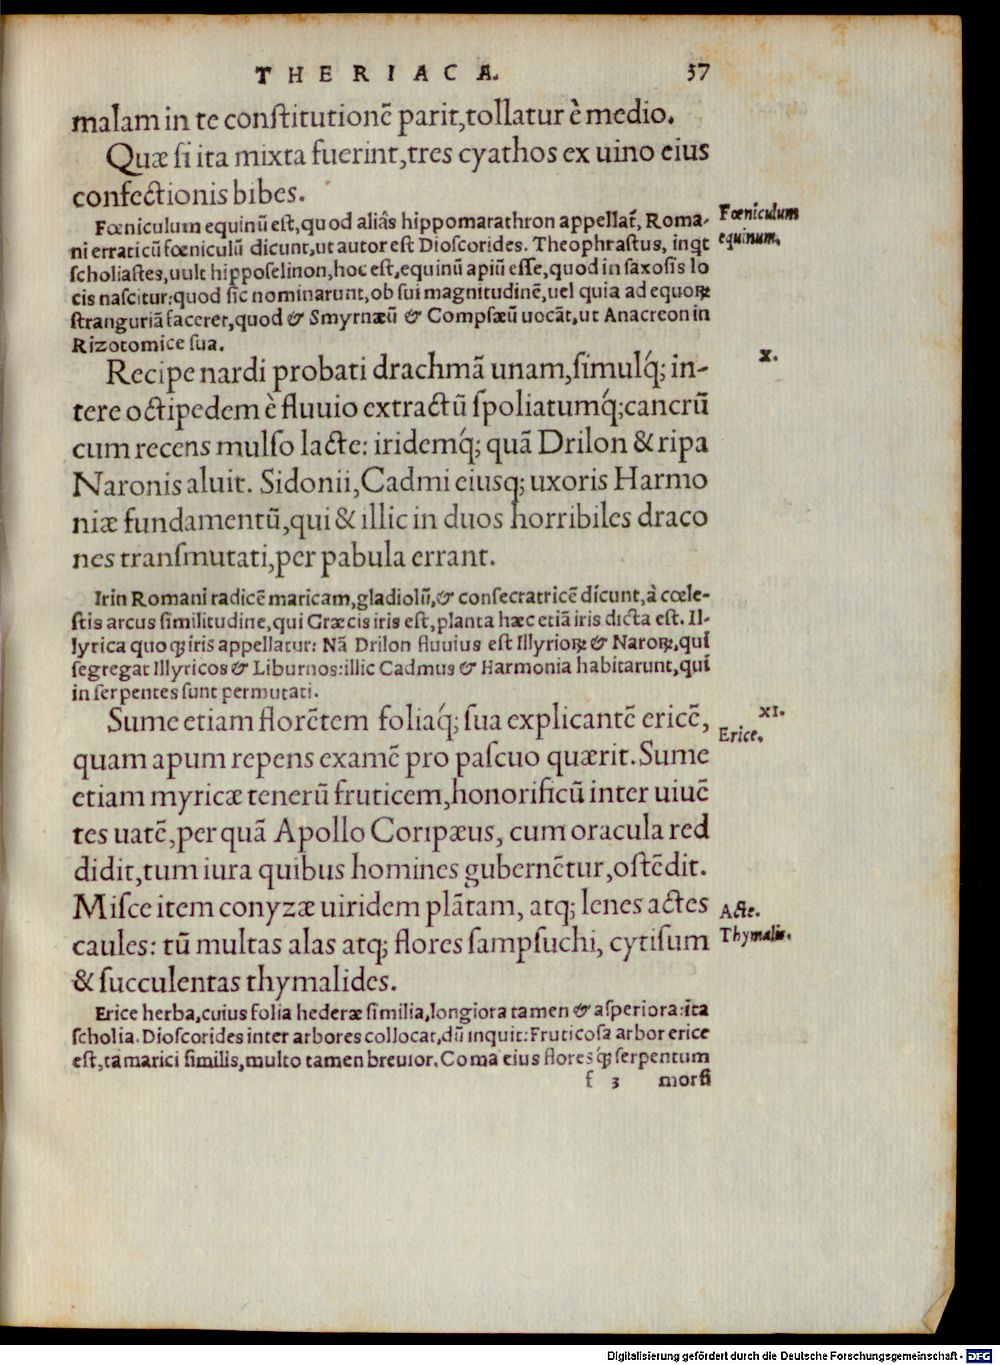 THERIACA. 37
malam in te conſtitutionẽ parit,tollatur è medio.
Quæ ſi ita mixta fuerint,tres cyathos ex uino eius
confectionis bibes.
Fœniculum equinũ eſt,quod aliâs hippomarathron appellat̃, Roma-
ni erraticũ fœniculũ dicunt,ut autor eſt Dioſcorides. Theophraſtus, inqt
ſcholiaſtes,uult hippoſelinon,hoc eſt,equinũ apiũ eſſe,quod in ſaxoſis lo
cis naſcitur:quod ſic nominarunt,ob ſui magnitudinẽ,uel quia ad equoꝝ
ſtranguriã faceret,quod & Smyrnæũ & Compſæũ uocãt,ut Anacreon in
Rizotomice ſua.
Fœniculum
equinum.
Recipe nardi probati drachmã unam,ſimulq́; in-
tere octipedem è fluuio extractũ ſpoliatumq́;cancrũ
cum recens mulſo lacte: iridemq́; quã Drilon & ripa
Naronis aluit. Sidonii,Cadmi eiusq; uxoris Harmo
niæ fundamentũ,qui & illic in duos horribiles draco
nes tranſmutati,per pabula errant.
X.
Irin Romani radicẽ maricam,gladiolũ,& conſecratricẽ dicunt,à cœle-
ſtis arcus ſimilitudine,qui Græcis iris eſt,planta hæc etiã iris dicta eſt. Il-
lyrica quoqꝫ iris appellatur: Nã Drilon fluuius eſt Illyrioꝝ & Naroꝝ,qui
ſegregat Illyricos & Liburnos:illic Cadmus & Harmonia habitarunt,qui
in ſerpentes ſunt permutati.
Sume etiam florẽtem foliaq́; ſua explicantẽ ericẽ,
quam apum repens examẽ pro paſcuo quærit.Sume
etiam myricæ tenerũ fruticem,honorificũ inter uiuẽ
tes uatẽ,per quã Apollo Coripæus, cum oracula red
didit,tum iura quibus homines gubernẽtur,oſtẽdit.
Miſce item conyzæ uiridem plãtam, atq; lenes actes
caules: tũ multas alas atq; flores ſampſuchi, cytiſum
& ſucculentas thymalides.
XI.
Erice.
Acte.
Thymalis.
Erice herba,cuius folia hederæ ſimilia,longiora tamen & aſperiora:ita
ſcholia.Dioſcorides inter arbores collocat,dũ inquit:Fruticoſa arbor erice
eſt,tamarici ſimilis,multo tamen breuior.Coma eius flores qꝫ ſerpentum
f 3 morſi
Digitalisierung gefördert durch die Deutsche Forschungsgemeinschaft - DFG